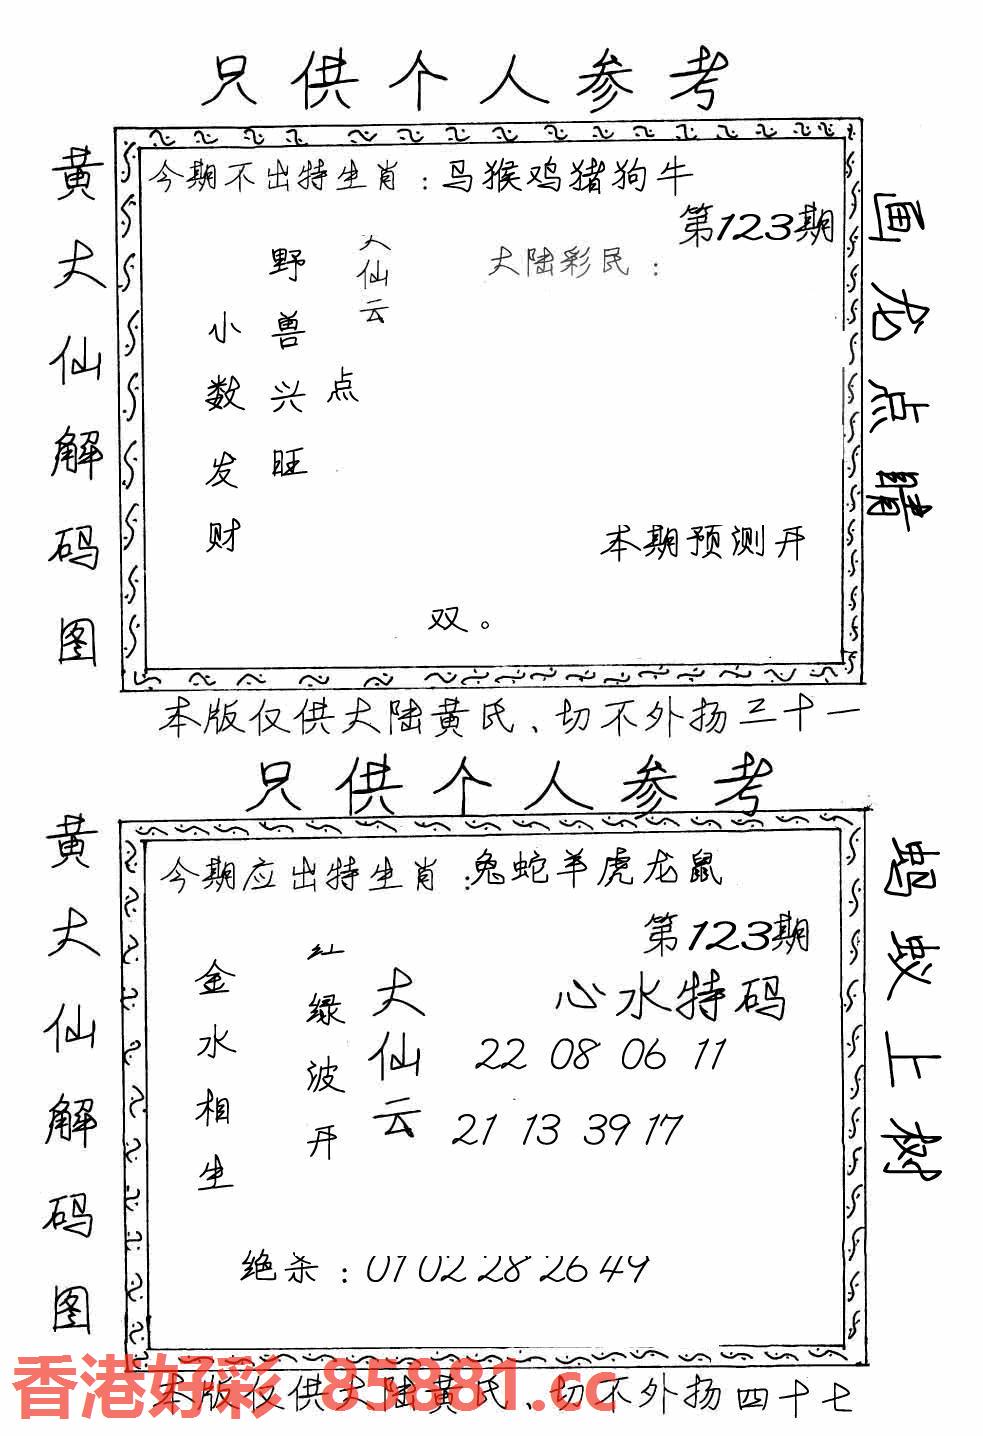 只供个人参考
黄大仙解码图
今期不出特生肖：马猴鸡猪狗牛
第123期
画龙点睛
大仙云
野兽兴旺点
小数发财
大陆彩民：
本期预测开
双。
本版仅供大陆黄氏、切不外扬三十一
只供个人参考
黄大仙解码图
今期应出特生肖：兔蛇羊虎龙鼠
第123期
蚂蚁上树
金水相生
红绿波开
大仙云
心水特码
22 08 06 11
21 13 39 17
绝杀：01 02 28 26 49
香港好彩 85881.cc
本版仅供大陆黄氏、切不外扬四十七